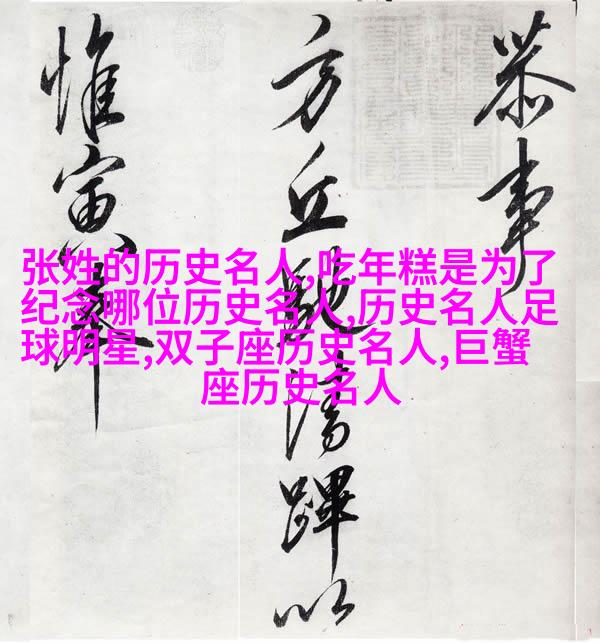 恭事
方丘清蹕以
惟寅
张姓的历史名人,吃年糕是为了
纪念哪位历史名人,历史名人足
球明星,双子座历史名人,巨蟹
座历史名人